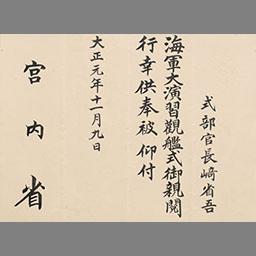 式部官長崎省吾
海軍大演習觀艦式御親閲
行幸供奉被 仰付
大正元年十一月九日
宮内省